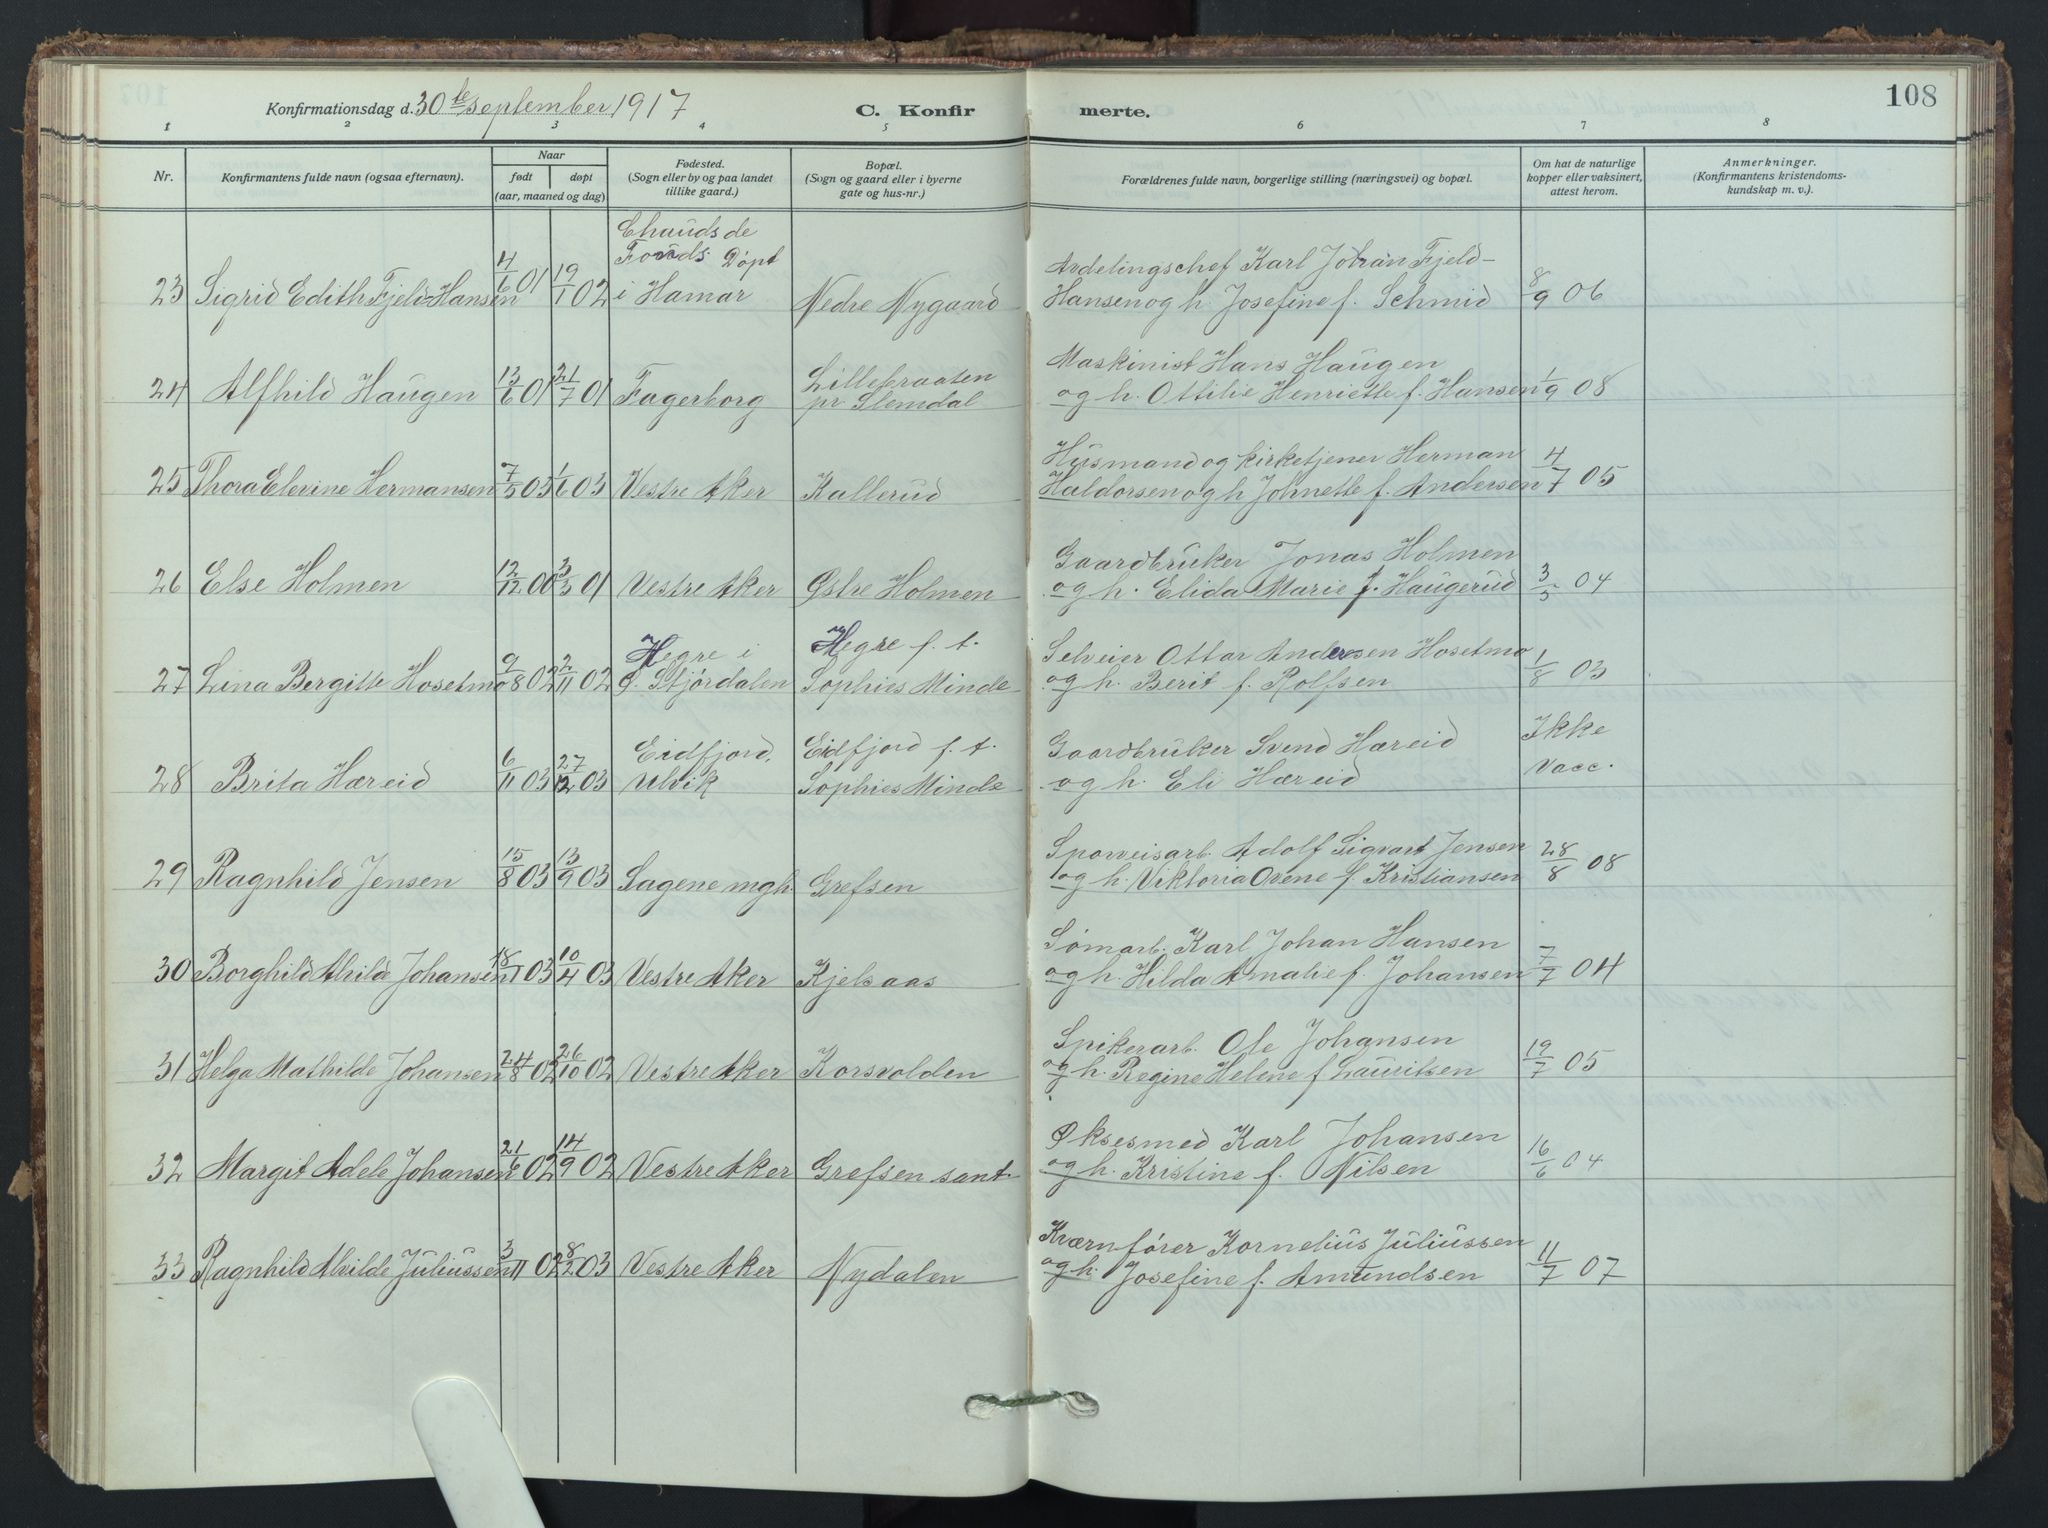 Konfirmationsdag d. 30te september 1917
C. Konfir merte.
108
1 2 3 4 5 6 7 8
Nr.
Konfirmantens fulde navn (ogsaa efternavn).
Naar
født døpt
(aar, maaned og dag)
Fødested.
(Sogn eller by og paa landet
tillike gaard.)
Bopæl.
(Sogn og gaard eller i byerne
gate og hus-nr.)
Forældrenes fulde navn, borgerlige stilling (næringsvei) og bopæl.
Om hat de naturlige
kopper eller vaksinert,
attest herom.
Anmerkninger.
(Konfirmantens kristendoms-
kundskap m. v.).
23 Sigrid Edith Fjeld-Hansen 4/6 01 19/1 02
Døpt
i Hamar
Nedre Nygaard
Avdelingschef Karl Johan Fjeld-
Hansen og h. Josefine f. Schmid
8/9 06
24 Alfhild Haugen 13/6 01 21/7 01 Fagerborg
Lillebraaten
pr Slemdal
Maskinist Hans Haugen
og h. Ottilie Henriette f. Hansen
1/9 08
25 Thora Elevine Hermansen 7/5 03 1/6 03 Vestre Aker Kallerud
Husmand og kirketjener Herman
Haldorsen og h Johnette f. Andersen
4/7 05
26 Else Holmen 12/12 00 3/3 01 Vestre Aker Østre Holmen
Gaardbruker Jonas Holmen
og h. Elida Marie f. Haugerud
3/5 04
27 Lina Bergitte Hosetmo 9/8 02 2/11 02
Hegre i
Ø. Stjørdalen
Hegre f. t.
Sophies Minde
Selveier Ottar Andersen Hosetmo
og h. Berit f. Rolfsen
1/8 03
28 Brita Hæreid 6/11 03 27/12 03
Eidfjord,
Ulvik
Eidfjord f. t.
Sophies Minde
Gaardbruker Svend Hæreid
og h. Eli Hæreid
Ikke
vacc.
29 Ragnhild Jensen 15/8 03 13/9 03 Sagene mgh. Grefsen
Sporveisarb. Adolf Sigvart Jensen
og h. Viktoria Ovene f. Kristiansen
28/8 08
30 Borghild Alvilde Johansen 18/1 03 10/4 03 Vestre Aker Kjelsaas
Sømarb. Karl Johan Hansen
og h. Hilda Amalie f. Johansen
7/7 04
31 Helga Mathilde Johansen 24/8 02 26/10 02 Vestre Aker Korsvolden
Spikerarb. Ole Johansen
og h. Regine Helene f Lauritsen
19/7 05
32 Margit Adele Johansen 21/6 02 14/9 02 Vestre Aker Grefsen sant.
Øksesmed Karl Johansen
og h. Kristine f. Nilsen
16/6 04
33 Ragnhild Alvilde Juliussen 3/11 02 8/2 03 Vestre Aker Nydalen
Kværnfører Kornelius Juliussen
og h. Josefine f. Amundsen
11/7 07